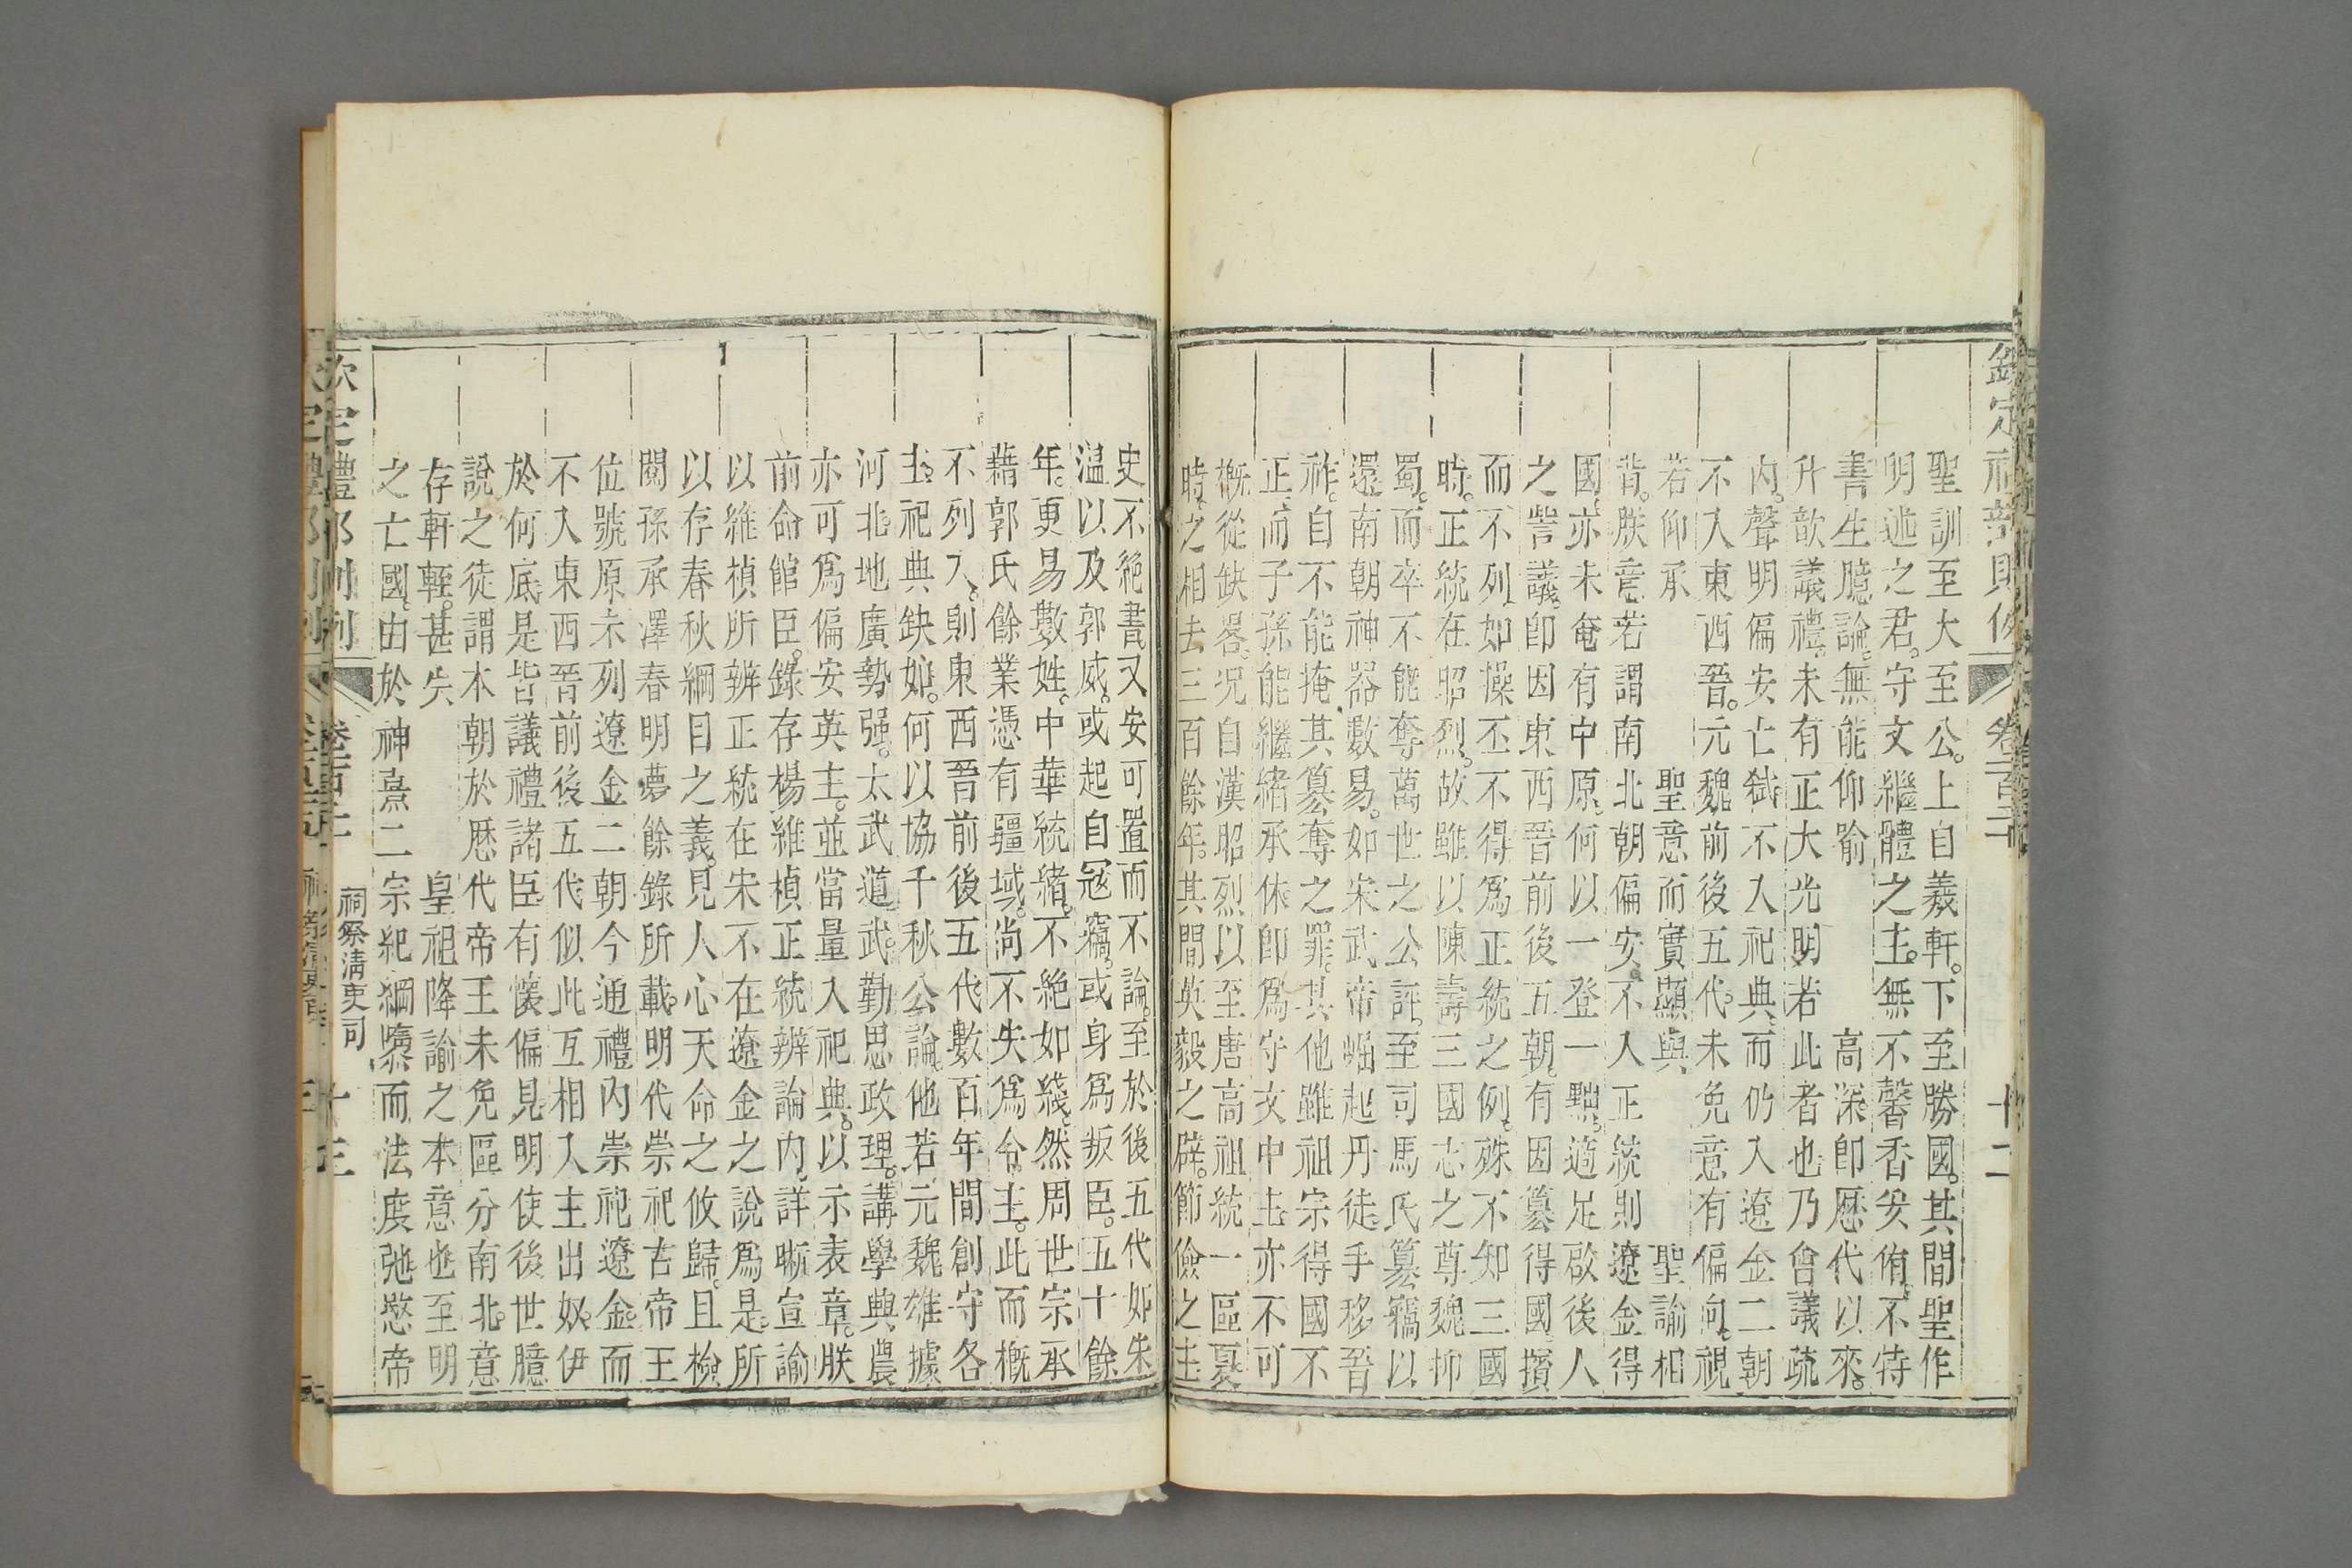 欽定禮部則例 卷一百二十 十二
聖訓至大至公。上自羲軒。下至勝國。其間聖作
明述之君。守文繼體之主。無不馨香妥侑。不特
書生臆論。無能仰喻高深。即歷代以來。
升歆議禮。未有正大光明若此者也乃會議疏
內。聲明偏安亡弒不入祀典。而仍入遼金二朝
不入東西晉。元魏前後五代。未免意有偏向。視
若仰承聖意而實顯與聖諭相
背。朕意若謂南北朝偏安。不入正統則遼金得
國。亦未奄有中原。何以一登一黜。適足啟後人
之訾議。即因東西晉前後五朝。有因篡得國。擯
而不列。如操丕不得爲正統之例。殊不知三國
時。正統在昭烈。故雖以陳壽三國志之尊魏抑
蜀。而卒不能奪萬世之公評。至司馬氏篡竊以
還南朝神器數易。如宋武帝崛起丹徒。手移晉
祚。自不能掩其篡奪之罪。其他雖祖宗得國不
正。而子孫能繼緒承休。即爲守文中主。亦不可
槪從缺畧。况自漢昭烈以至唐高祖統一區夏
時。之相去三百餘年。其間英毅之辟。節儉之主
史不絶書。又安可置而不論。至於後五代如朱
温以及郭威。或起自冦竊。或身爲叛臣。五十餘
年。更易數姓。中華統緒。不絶如綫。然周世宗承
藉郭氏餘業憑有疆域。尚不失爲令主。此而槪
不列入。則東西晉前後五代數百年間創守各
主。祀典缺如。何以協千秋公論。他若元魏雄據
河北。地廣勢强。太武道武。勤思政理。講學興農
亦可爲偏安英主。並當量入祀典。以示表章。朕
前命館臣。錄存楊維楨正統辨論內。詳晰宣諭
以維楨所辨正統在宋不在遼金之說爲是。所
以存春秋綱目之義。見人心天命之攸歸。且檢
閱孫承澤春明夢餘錄所載。明代崇祀古帝王
位號。原未列遼金二朝今通禮內崇祀遼金。而
不入東西晉前後五代似此互相入主出奴。伊
於何底。是皆議禮諸臣。有懷偏見。明使後世臆
說之徒謂本朝於歷代帝王未免區分南北。意
存軒輊。甚失皇祖降諭之本意也至明
之亡國。由於神熹二宗紀綱隳而法度弛愍帝
欽定禮部則例 卷一百二十 祠祭清吏司 十三